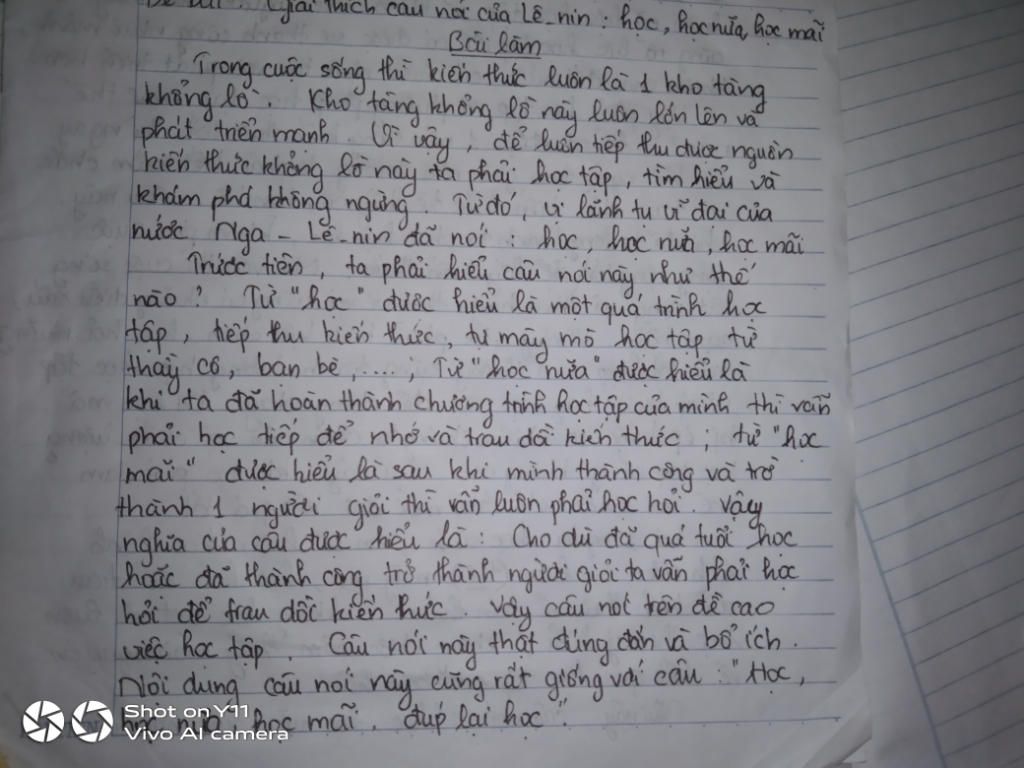 Đề bài : Giải thích câu nói của Lê-nin : học, học nữa, học mãi
Bài làm
Trong cuộc sống thì kiến thức luôn là 1 kho tàng
khổng lồ. Kho tàng khổng lồ này luôn lớn lên và
phát triển mạnh. Vì vậy, để luôn tiếp thu được nguồn
kiến thức khổng lồ này ta phải học tập, tìm hiểu và
khám phá không ngừng. Từ đó, vị lãnh tụ vĩ đại của
nước Nga - Lê-nin đã nói : học, học nữa, học mãi
Trước tiên, ta phải hiểu câu nói này như thế
nào? Từ "học" được hiểu là một quá trình học
tập, tiếp thu kiến thức, tự mày mò học tập từ
thầy cô, bạn bè, ...; Từ "học nữa" được hiểu là
khi ta đã hoàn thành chương trình học tập của mình thì vẫn
phải học tiếp để nhớ và trau dồi kiến thức ; từ "học
mãi" được hiểu là sau khi mình thành công và trở
thành 1 người giỏi thì vẫn luôn phải học hỏi. Vậy
nghĩa của câu được hiểu là : Cho dù đã quá tuổi học
hoặc đã thành công trở thành người giỏi ta vẫn phải học
hỏi để trau dồi kiến thức. Vậy câu nói trên đề cao
việc học tập. Câu nói này thật đúng đắn và bổ ích.
Nội dung câu nói này cũng rất giống với câu : "Học,
học nữa, học mãi, đúp lại học".
Shot on Y11
Vivo AI camera